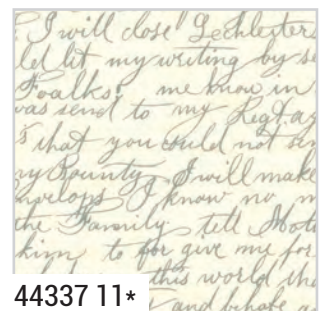 I will close! Lechlesters
ld let my writing by se
Foalks! me know in
was send to my Regt. as
s that you could not sen
ny Bounty, I will make
nvelops I know no m
the Family tell Moth
him to for give me for
this world the
and behave a
44337 11*